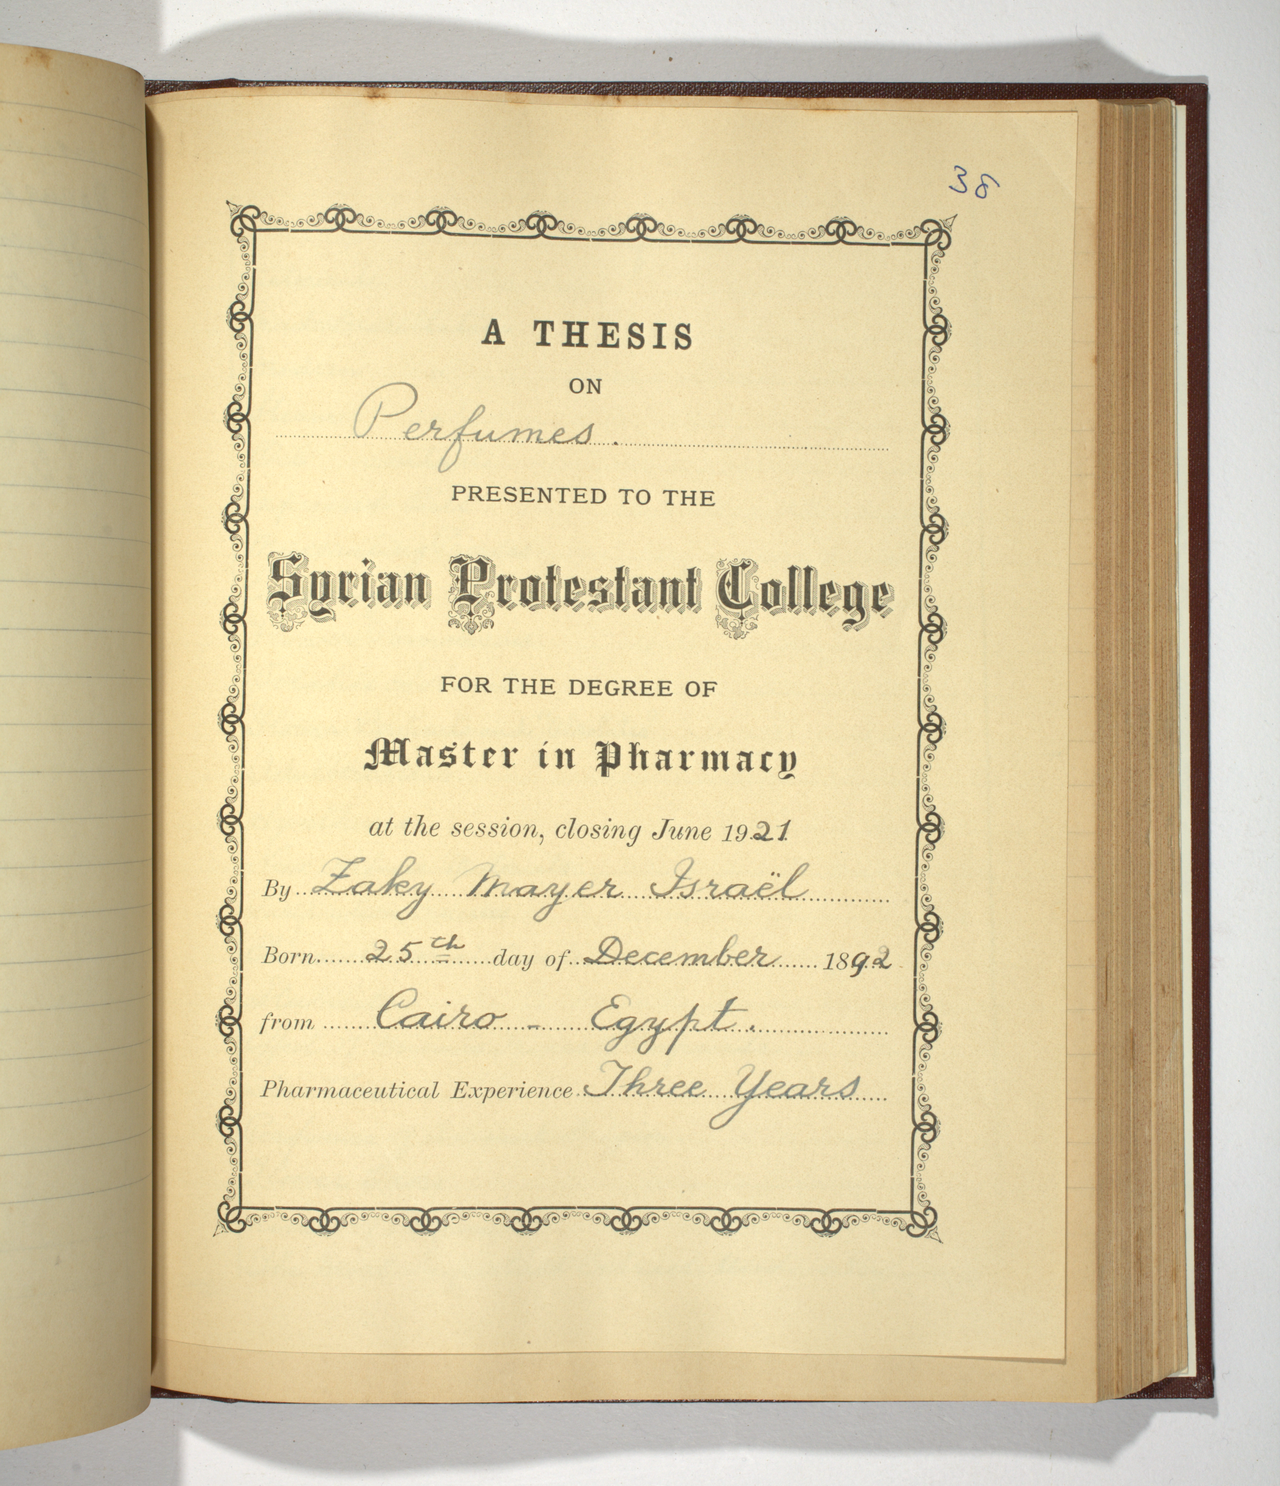 38
A THESIS
ON
Perfumes.
PRESENTED TO THE
Syrian Protestant College
FOR THE DEGREE OF
Master in Pharmacy
at the session, closing June 1921
By Zaky Mayer Israël
Born 25th day of December 1892
from Cairo - Egypt.
Pharmaceutical Experience Three Years